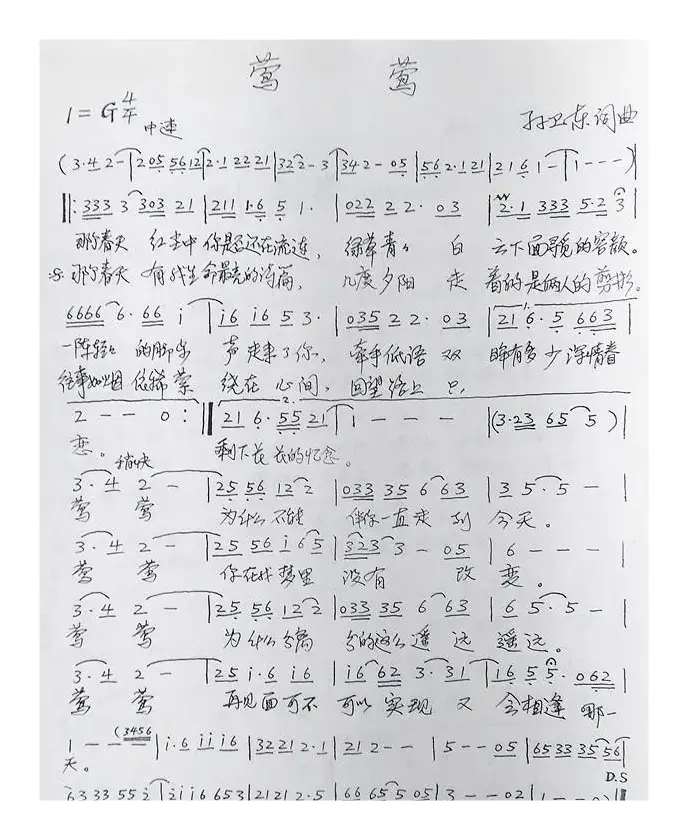 莺 莺
1=G 4/4 中速 孙卫东词曲
(3·4 2-|205 5612|2·1 22 21|322-3|342-05|562·121|2161-|1---)
‖:333 3 303 21|211 1·6 5 1·|022 2 2· 03|2·1 333 5·2 3|
那个春天 红尘中你是否还在流连, 绿草青青 白云下面寻觅的容颜。
𝄋 那个春天 有我生命最亮的诗篇, 几度夕阳 走着的是俩人的剪影。
6666 6· 66 i|i6 i6 5 3·|035 2 2· 03|1. 21 6·5 663|
一阵轻轻的脚步声走来了你, 牵手低语双眸有多少深情眷
往事如烟依稀萦绕在心间, 回望路上只,
2 - - 0:‖2. 21 6· 55 21|1 - - -|(3·23 65 5)|
恋。 剩下长长的怀念。
稍快
3·4 2 -|25 56 12 2|033 35 6 63|3 5·5 -|
莺 莺 为什么不能 伴你一直走到 今天。
3·4 2 -|25 56 i 65|323 3 - 05|6 - - -|
莺 莺 你在我梦里 没有 改 变。
3·4 2 -|25 56 12 2|033 35 6 63|6 5·5 -|
莺 莺 为什么分离 分的这么遥远 遥远。
3·4 2 -|25 i·6 i6|i6 62 3·31|16 5 5· 062|
莺 莺 再见面可不可以实现 又会相逢 哪一
1 - - -(3456|i·6 i i i6|322 1 2·1|21 2 - -|5 - - 05|65 33 35 56|
天。
D.S
63 33 55 2|2 i i6 653|2121 2·5|66 65 5 05|3 - - 02|1 - - 0)‖